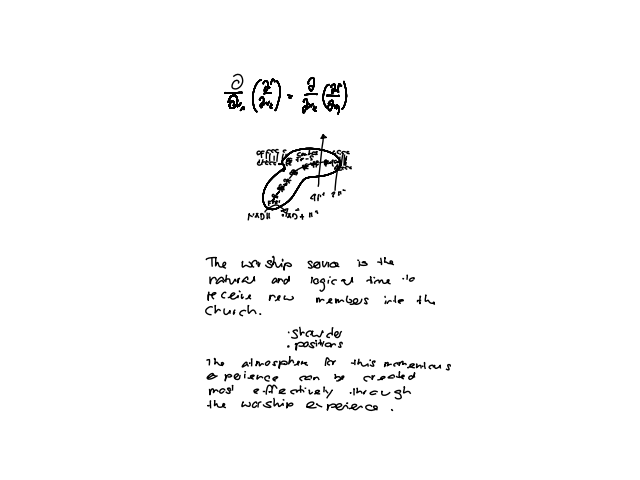 ∂/∂u₁ (∂r/∂u₂) = ∂/∂u₂ (∂r/∂u₁)
4H⁺
NADH
NAD⁺ + H⁺
The worship service is the
natural and logical time to
receive new members into the
church.
. shoulder
. positions
The atmosphere for this momentous
experience can be created
most effectively through
the worship experience.